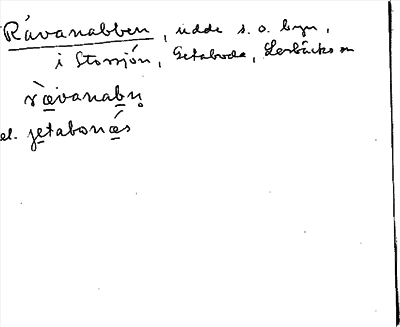 Råvanabben, udde s. o. byn,
i Storsjön, Getaboda, Lerbäcks sn
ràvanabn̥
el. jetabonǽs